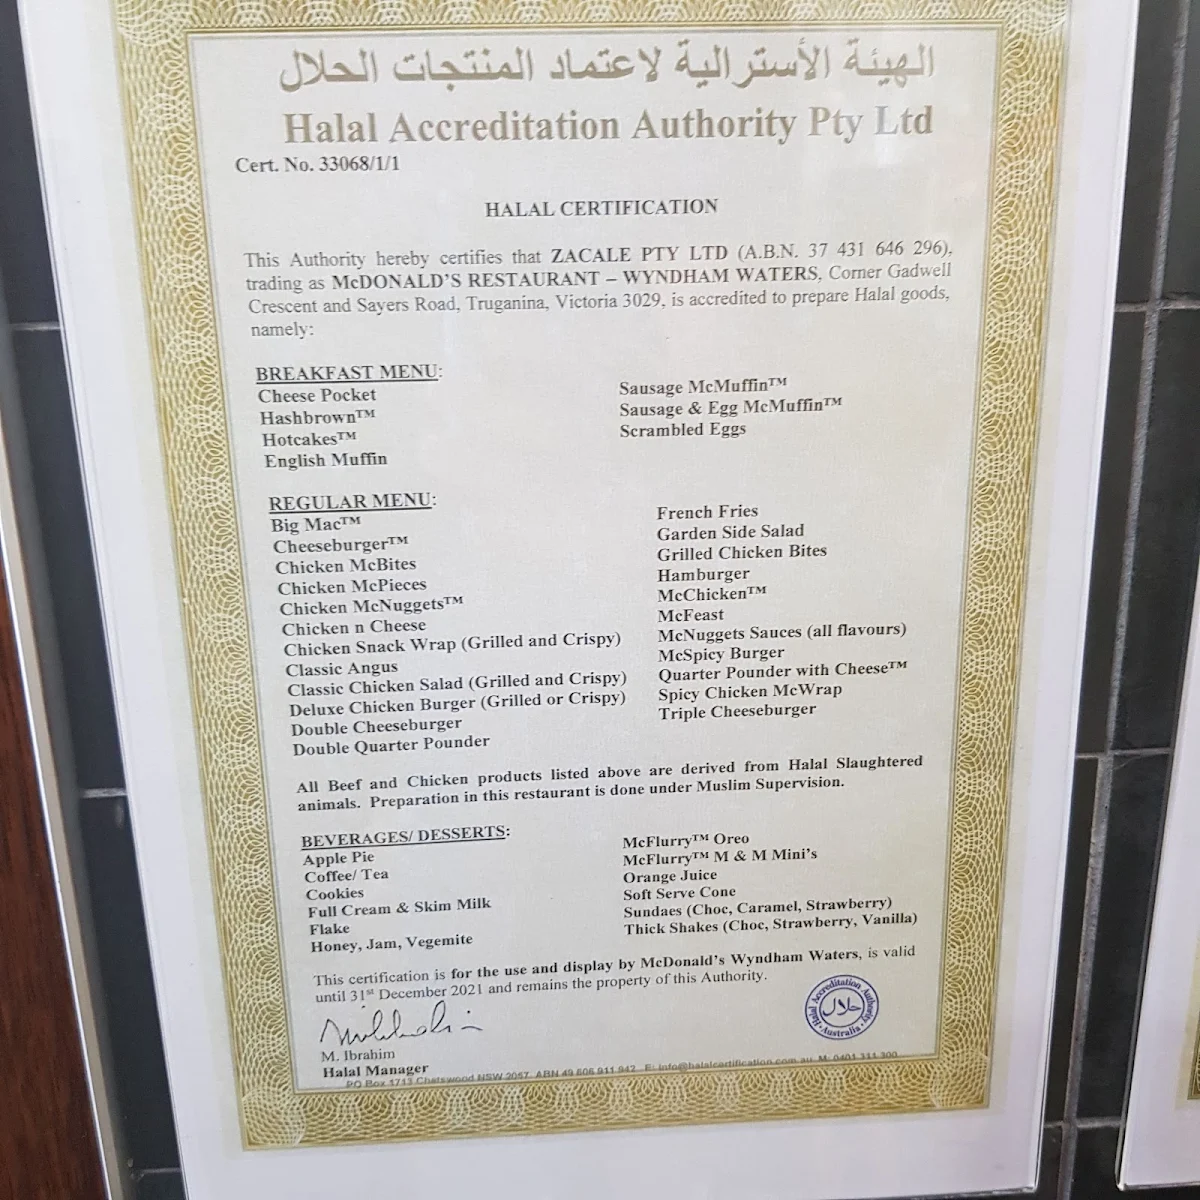 الهيئة الأسترالية لاعتماد المنتجات الحلال
Halal Accreditation Authority Pty Ltd
Cert. No. 33068/1/1
HALAL CERTIFICATION
This Authority hereby certifies that ZACALE PTY LTD (A.B.N. 37 431 646 296),
trading as McDONALD'S RESTAURANT – WYNDHAM WATERS, Corner Gadwell
Crescent and Sayers Road, Truganina, Victoria 3029, is accredited to prepare Halal goods,
namely:
BREAKFAST MENU:
Cheese Pocket
Hashbrown™
Hotcakes™
English Muffin
Sausage McMuffin™
Sausage & Egg McMuffin™
Scrambled Eggs
REGULAR MENU:
Big Mac™
Cheeseburger™
Chicken McBites
Chicken McPieces
Chicken McNuggets™
Chicken n Cheese
Chicken Snack Wrap (Grilled and Crispy)
Classic Angus
Classic Chicken Salad (Grilled and Crispy)
Deluxe Chicken Burger (Grilled or Crispy)
Double Cheeseburger
Double Quarter Pounder
French Fries
Garden Side Salad
Grilled Chicken Bites
Hamburger
McChicken™
McFeast
McNuggets Sauces (all flavours)
McSpicy Burger
Quarter Pounder with Cheese™
Spicy Chicken McWrap
Triple Cheeseburger
All Beef and Chicken products listed above are derived from Halal Slaughtered
animals. Preparation in this restaurant is done under Muslim Supervision.
BEVERAGES/ DESSERTS:
Apple Pie
Coffee/ Tea
Cookies
Full Cream & Skim Milk
Flake
Honey, Jam, Vegemite
McFlurry™ Oreo
McFlurry™ M & M Mini's
Orange Juice
Soft Serve Cone
Sundaes (Choc, Caramel, Strawberry)
Thick Shakes (Choc, Strawberry, Vanilla)
This certification is for the use and display by McDonald's Wyndham Waters, is valid
until 31st December 2021 and remains the property of this Authority.
Halal Accreditation Authority
حلال
Australia
M. Ibrahim
Halal Manager
PO Box 1713 Chatswood NSW 2057. ABN 49 606 911 942. E: info@halalcertification.com.au. M: 0401 311 300